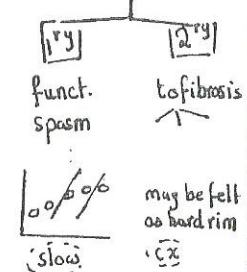 1ry 2ry
funct. to fibrosis
spasm
may be felt
as hard rim
slow cx